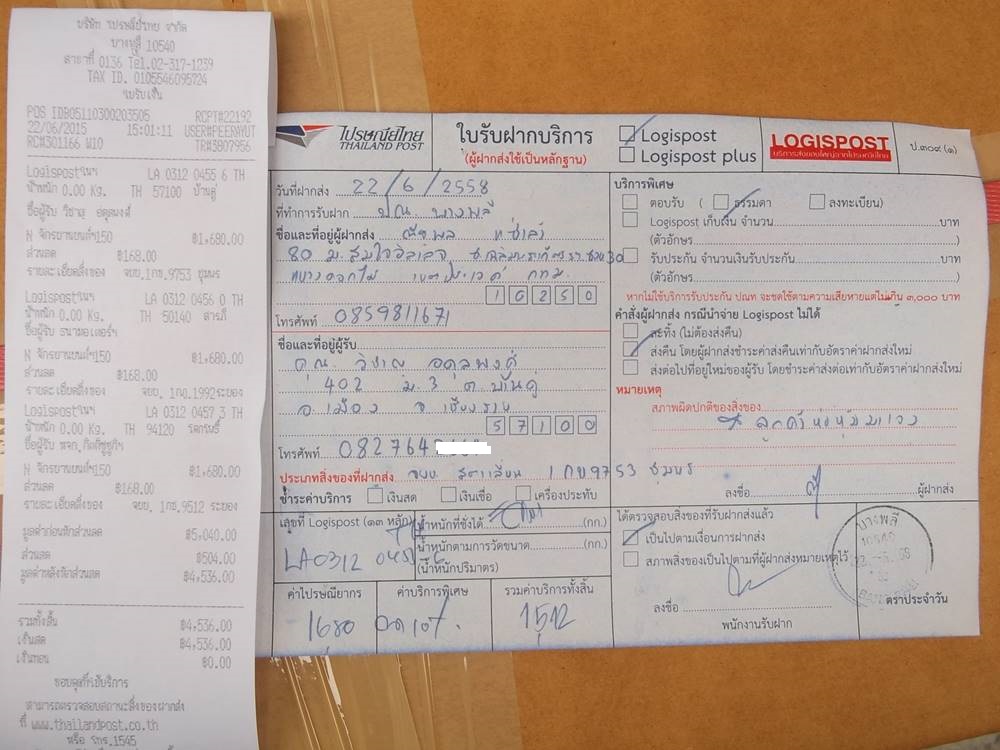 บริษัท ไปรษณีย์ไทย จำกัด
บางพลี 10540
สาขาที่ 0136 Tel.02-317-1239
TAX ID. 0105546095724
ใบรับเงิน
POS IDB05110300203505 RCPT#22192
22/06/2015 15:01:11 USER#PEERAYUT
RC#301166 W10 TR#3807956
Logispostในฯ LA 0312 0455 6 TH
น้ำหนัก 0.00 Kg. TH 57100 บ้านดู่
ชื่อผู้รับ วิชาญ อดุลพงศ์
N จักรยานยนต์150 ฿1,680.00
ส่วนลด ฿168.00
รายละเอียดสิ่งของ จยย.1กข.9753 ชุมพร
Logispostในฯ LA 0312 0456 0 TH
น้ำหนัก 0.00 Kg. TH 50140 สารภี
ชื่อผู้รับ ธนามอเตอร์ฯ
N จักรยานยนต์150 ฿1,680.00
ส่วนลด ฿168.00
รายละเอียดสิ่งของ จยย. 1กฎ.1992ระยอง
Logispostในฯ LA 0312 0457 3 TH
น้ำหนัก 0.00 Kg. TH 94120 โคกโพธิ์
ชื่อผู้รับ หจก.กิตติซูซูกิฯ
N จักรยานยนต์150 ฿1,680.00
ส่วนลด ฿168.00
รายละเอียดสิ่งของ จยย. 1กช.9512 ระยอง
มูลค่าก่อนหักส่วนลด ฿5,040.00
ส่วนลด ฿504.00
มูลค่าหลังหักส่วนลด ฿4,536.00
รวมทั้งสิ้น ฿4,536.00
เงินสด ฿4,536.00
เงินทอน ฿0.00
ขอบคุณที่ใช้บริการ
สามารถตรวจสอบสถานะสิ่งของฝากส่ง
ที่ www.thailandpost.co.th
หรือ โทร.1545
ไปรษณีย์ไทย
THAILAND POST
ใบรับฝากบริการ
(ผู้ฝากส่งใช้เป็นหลักฐาน)
Logispost
Logispost plus
LOGISPOST
บริการส่งของใหญ่จากไปรษณีย์ไทย
ป.๓๐๙ (๑)
วันที่ฝากส่ง 22/6/2558
ที่ทำการรับฝาก ปณ. บางพลี
ชื่อและที่อยู่ผู้ฝากส่ง
80 ม.สมใจวิลเลจ
10250
โทรศัพท์ 0859811671
ชื่อและที่อยู่ผู้รับ
คุณ วิชาญ อดุลพงศ์
402 ม.3 ต.บ้านดู่
อ.เมือง จ.เชียงราย
57100
โทรศัพท์ 0827648
ประเภทสิ่งของที่ฝากส่ง จยย. 1กข9753 ชุมพร
ชำระค่าบริการ เงินสด เงินเชื่อ เครื่องประทับ
เลขที่ Logispost (๑๓ หลัก)
LA0312 0455 6
น้ำหนักที่ชั่งได้ (กก.)
น้ำหนักตามการวัดขนาด (กก.)
(น้ำหนักปริมาตร)
ค่าไปรษณียากร ค่าบริการพิเศษ รวมค่าบริการทั้งสิ้น
1680 ลด 10% 1512
บริการพิเศษ
ตอบรับ ( ธรรมดา ลงทะเบียน)
Logispost เก็บเงิน จำนวน บาท
(ตัวอักษร )
รับประกัน จำนวนเงินรับประกัน บาท
(ตัวอักษร )
หากไม่ใช้บริการรับประกัน ปณท จะชดใช้ตามความเสียหายแต่ไม่เกิน ๓,๐๐๐ บาท
คำสั่งผู้ฝากส่ง กรณีนำจ่าย Logispost ไม่ได้
ละทิ้ง (ไม่ต้องส่งคืน)
ส่งคืน โดยผู้ฝากส่งชำระค่าส่งคืนเท่ากับอัตราค่าฝากส่งใหม่
ส่งต่อไปที่อยู่ใหม่ของผู้รับ โดยชำระค่าส่งต่อเท่ากับอัตราค่าฝากส่งใหม่
หมายเหตุ
สภาพผิดปกติของสิ่งของ
ลูกค้าห่อหุ้มมาเอง
ลงชื่อ ผู้ฝากส่ง
ได้ตรวจสอบสิ่งของที่รับฝากส่งแล้ว
เป็นไปตามเงื่อนการฝากส่ง
สภาพสิ่งของเป็นไปตามที่ผู้ฝากส่งหมายเหตุไว้
ลงชื่อ
พนักงานรับฝาก
บางพลี
10540
ตราประจำวัน